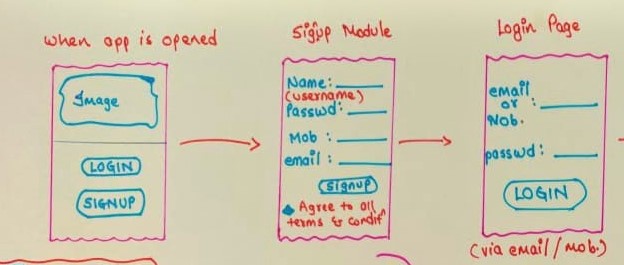 when app is opened
Image
LOGIN
SIGNUP
Signup Module
Name:
(username)
Passwd:
Mob :
email :
Signup
Agree to all
terms & condtn
Login Page
email
or :
Mob.
passwd :
LOGIN
(via email / Mob.)